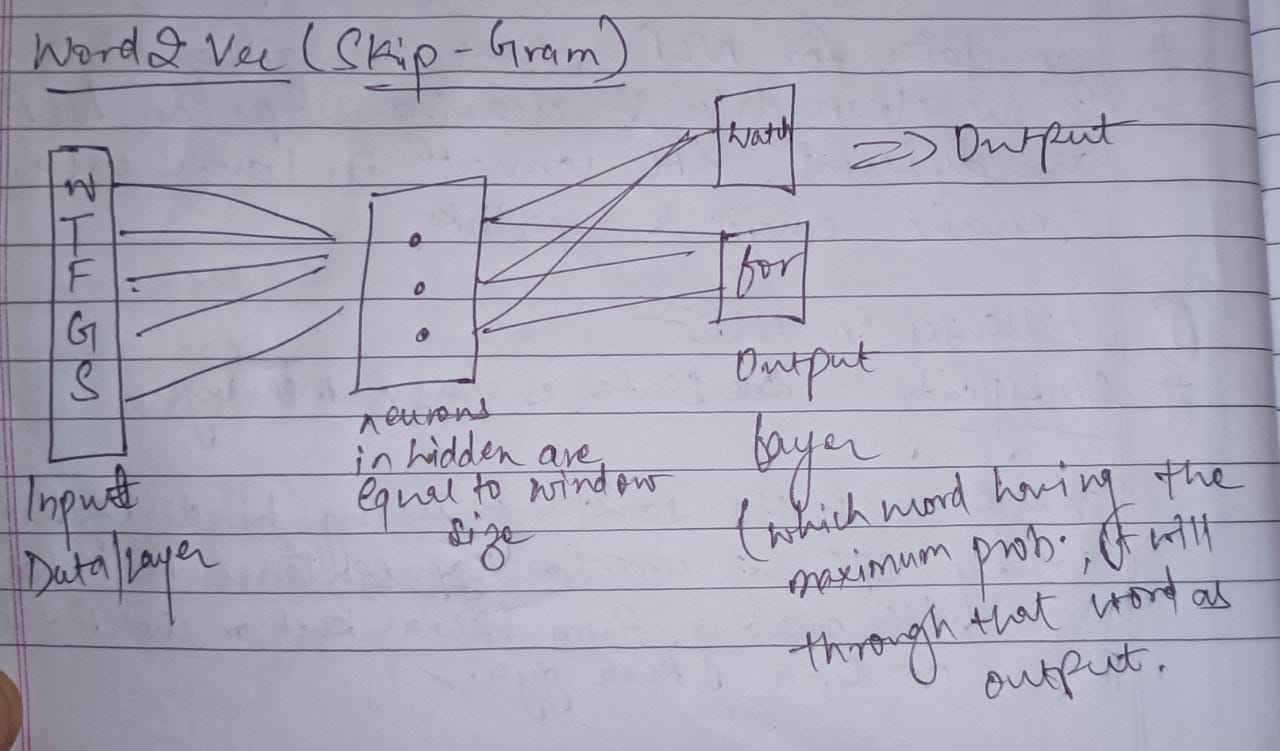 Word2Vec (Skip-Gram)
W
T
F
G
S
Input
Data/Layer
neurons
in hidden are
equal to window
size
Watch
=> Output
for
Output
Layer
(which word having the
maximum prob., it will
through that word as
output.